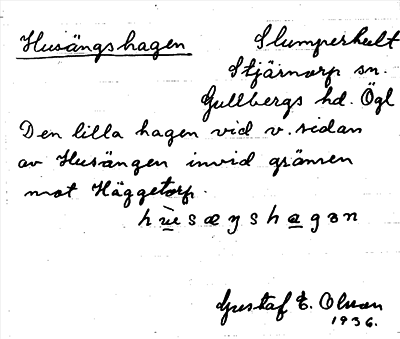 Husängshagen Slumperhult
Stjärnorp sn.
Gullbergs hd. Ögl
Den lilla hagen vid v. sidan
av Husängen invid gränsen
mot Häggetorp.
Gustaf E. Olsson
1936.